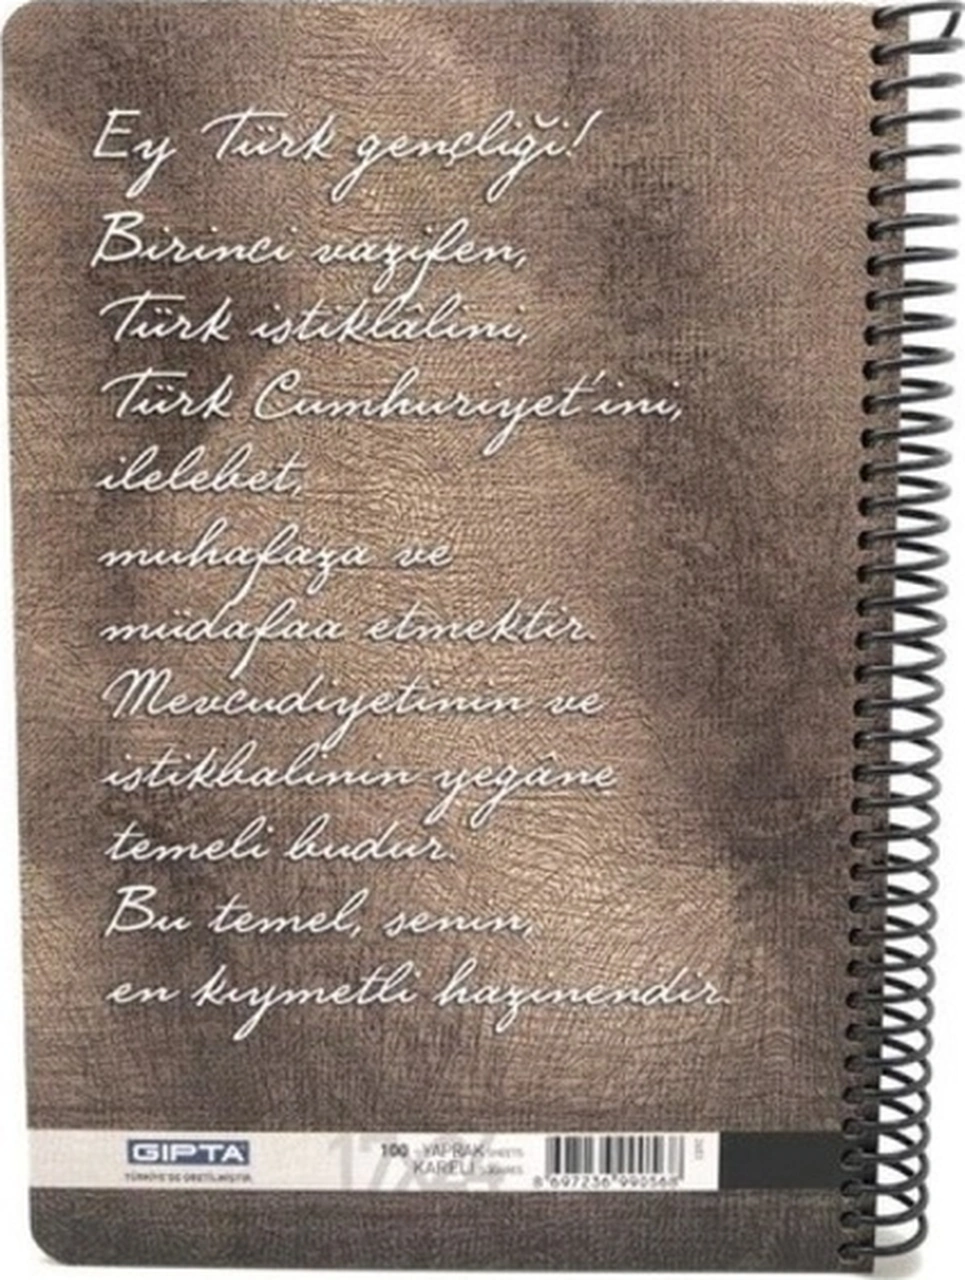 Ey Türk gençliği!
Birinci vazifen,
Türk istiklâlini,
Türk Cumhuriyet'ini,
ilelebet,
muhafaza ve
müdafaa etmektir.
Mevcudiyetinin ve
istikbalinin yegâne
temeli budur.
Bu temel, senin,
en kıymetli hazinendir.
GIPTA
TÜRKİYE'DE ÜRETİLMİŞTİR.
100 YAPRAK SHEETS
KARELİ SQUARES
8 697236 990568